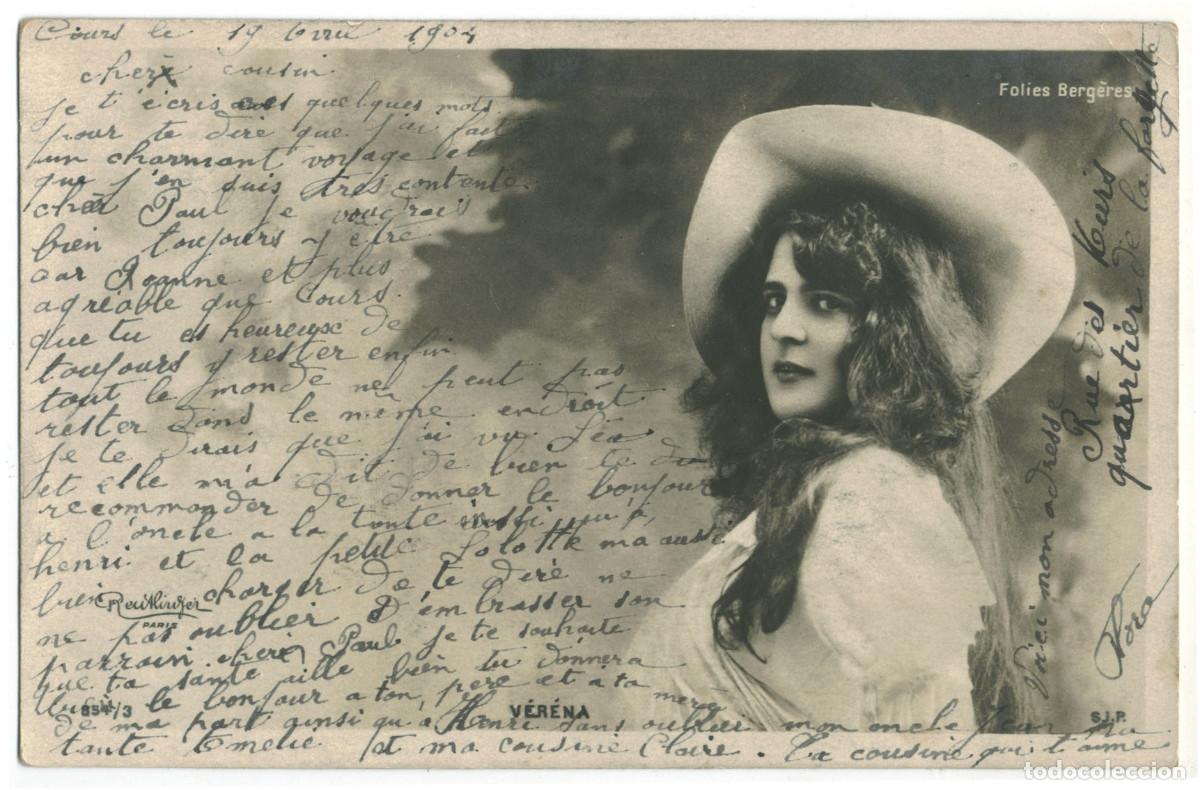 Cours le 19 Avril 1904
cher cousin
je t'écris ces quelques mots
pour te dire que j'ai fait
un charmant voyage et
que j'en suis très contente.
cher Paul je voudrais
bien toujours y être
car Roanne et plus
agréable que Cours.
que tu es heureuse de
toujours y rester enfin
tout le monde ne peut pas
rester dans le même endroit
je te dirais que j'ai vu Léa
et elle m'a dit de bien te
recommander de donner le bonjour
a l'oncle a la tante aussi qu'à
henri et la petite Lolotte ma aussi
bien charger de te dire ne
ne pas oublier d'embrasser son
parrain. cher Paul je te souhaite
que ta santé aille bien tu donnera
le bonjour a ton père et a ta mère
de ma part ainsi qu'à Henri sans oublier mon oncle Jean ma
tante Emelie et ma cousine Claire. Ta cousine qui t'aime
Flora
Voici mon adresse
Rue des Murs
quartier de la forgette
Folies Bergères
Reutlinger
PARIS
854/3
VÉRÉNA
S.I.P.
todocoleccion